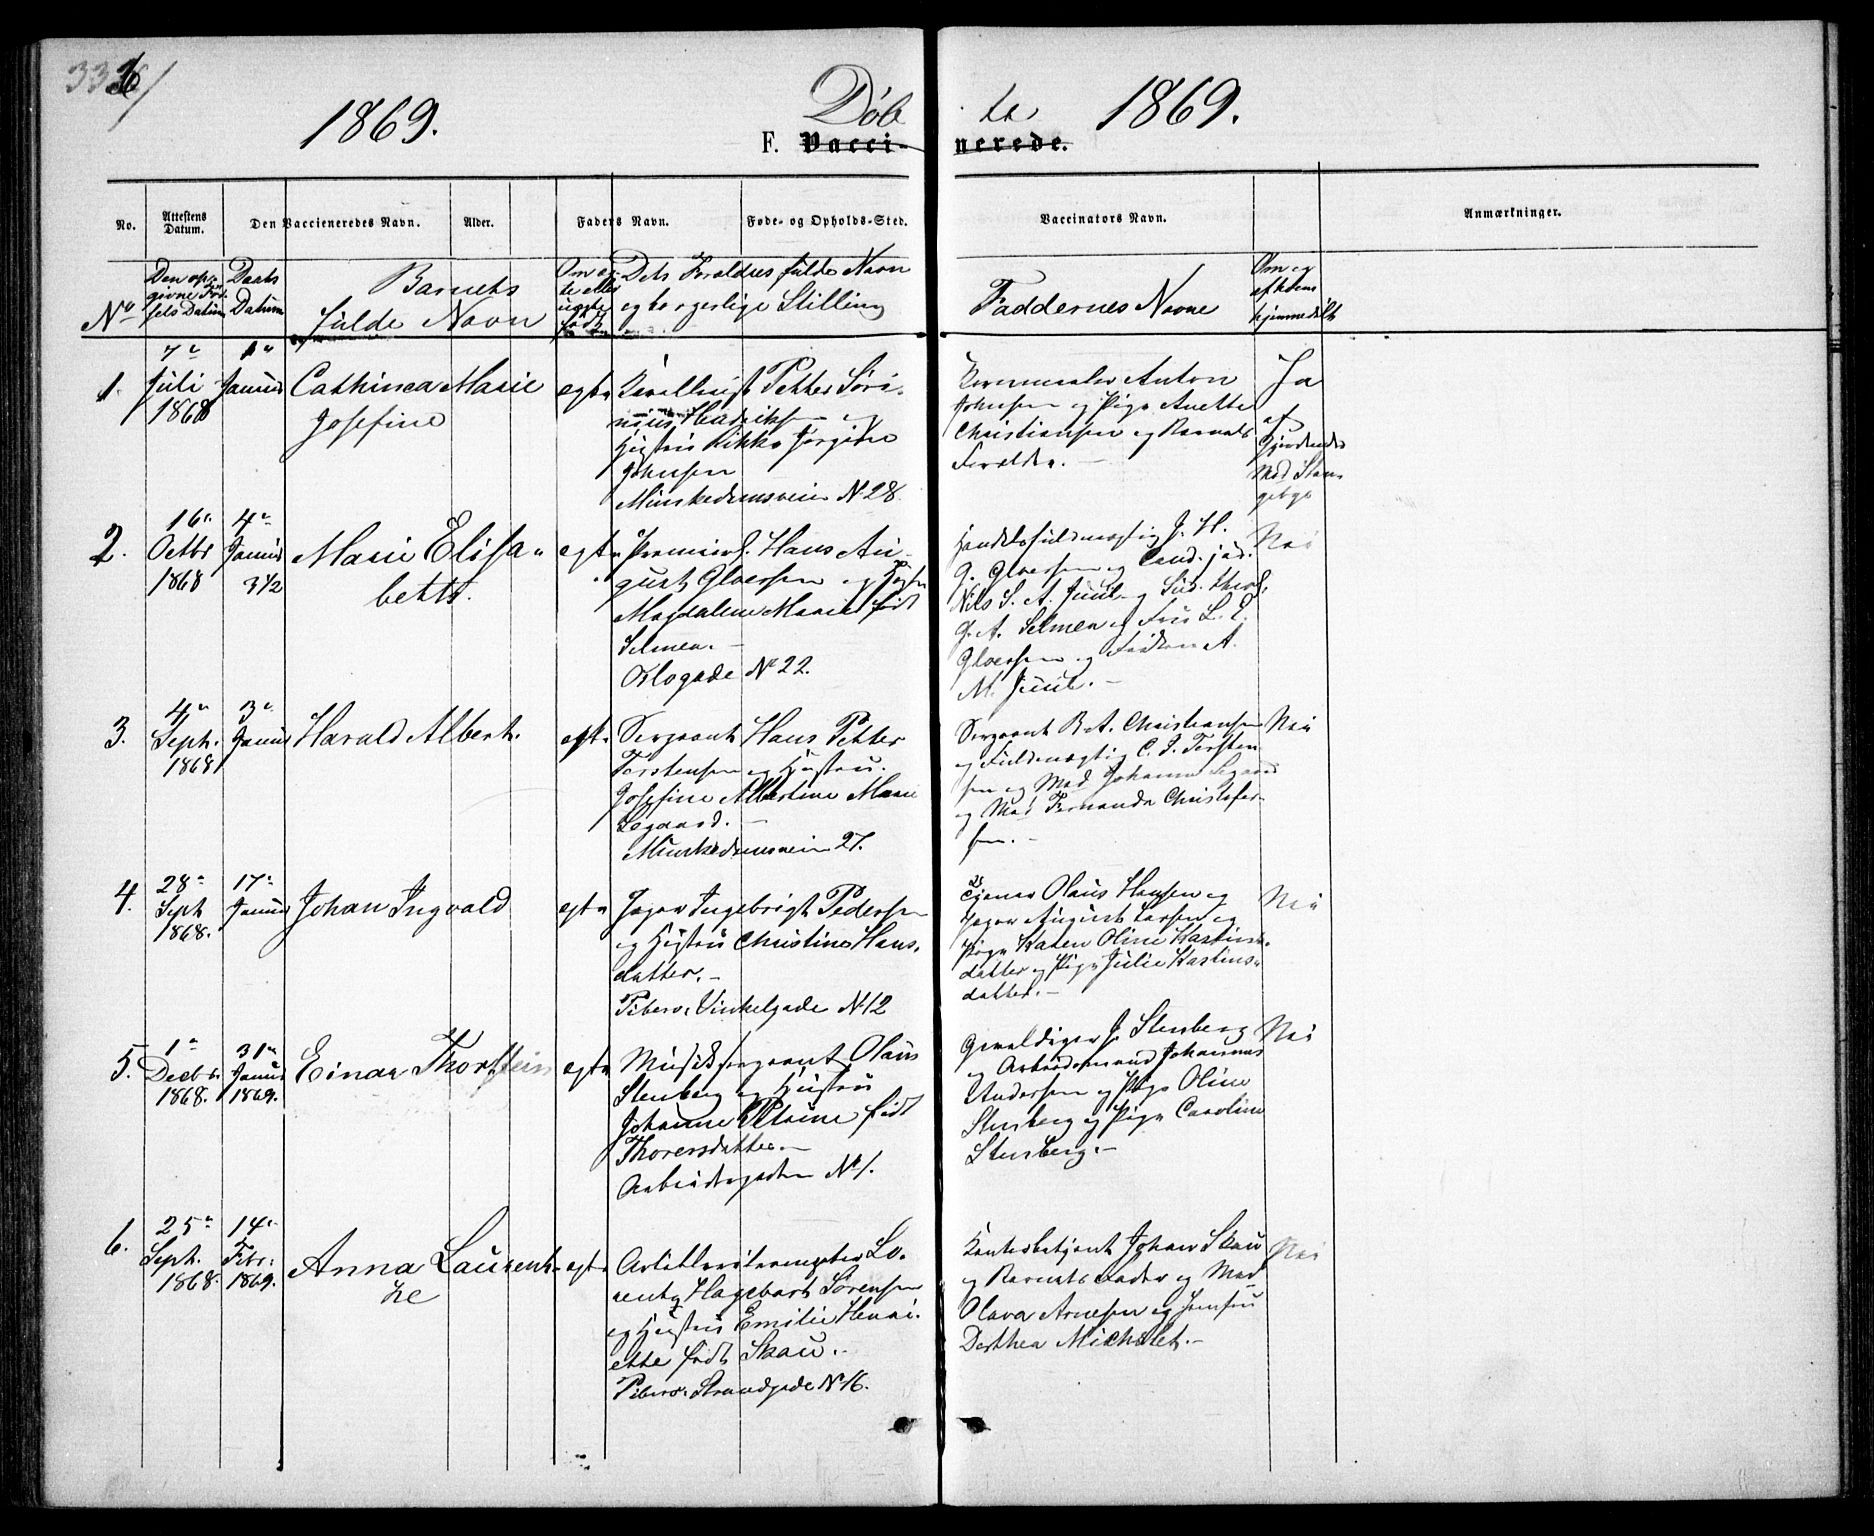 1869.
Døbte
1869.
F. Vaccinerede.
No.
Attestens Datum.
Den Vaccieneredes Navn.
Alder.
Faders Navn.
Føde- og Opholds-Sted.
Vaccinators Navn.
Anmærkninger.
No
Den op-
givne Fød-
sels Datum
Daabs
Datum
Barnets
fulde Navn
Om eg-
te eller
uegte
født
Dets Forældres fulde Navn
og borgerlige Stilling
Faddernes Navne
Om og
af hvem
hjemmedøbt
1.
7de
Juli
1868
1ste
Januar
Cathinca Marie
Josefine
egte
Petter Søri-
nius Hendriksen og
Hustru Rikke Jørgine
Johnsen
Munkedamsveien No 28.
Anton
Johnsen og Pige Anette
Christiansen og Barnets
Forældre. —
Ja
af
2.
16de
Octbr
1868
4de
Januar
342
Marie Elisa-
beth.
egte
Premierl. Hans Au-
gust Gloersen og Hustru
Magdalene Marie født
Selmer. —
Oslogade No 22.
Handelsfuldmægtig J. H.
G. Gloersen og Cand. jur.
Nils S. A. Juul og Stud. theol.
G. A. Selmer og Fru L. E.
Gloersen og Frøken A.
M. Juul. —
Nei
3.
4de
Septr.
1868
3de
Januar
Harald Albert.
egte
Sergeant Hans Petter
Torstensen og Hustru
Josefine Albertine Marie
Segaard. —
Munkedamsveien 27.
Sergeant B. A. Christiansen
og Fuldmægtig C. J. Torsten-
sen og Mad Johanne Segaard
og Mad Fernanda Christofer-
sen. —
Nei
4.
28de
Sept
1868.
17de
Januar
Johan Ingvald
egte
Jæger Ingebrigt Pedersen
og Hustru Christine Hans-
datter. —
Piberv. Vinkelgade No 12
Tjener Olaus Hansen og
Jæger August Larsen og
Pige Karen Oline Karlins-
datter og Pige Julie Karlins-
datter. —
Nei
5.
1ste
Decbr.
1868.
31te
Januar
1869.
Einar Thorstein
egte
Musiksergeant Olaus
Stenberg og Hustru
Johanne Petrine født
Thorersdatter. —
Arbeidergaden No 1.
Gevaldiger J. Stenberg
og Arbeidsmand Johannes
Andersen og Pige Oline
Stenberg og Pige Caroline
Stenberg. —
Nei
6.
25de
Septr.
1868.
14de
Febr.
1869.
Anna Laurent-
ze
egte
Lo-
rentz Hagebart Sørensen
og Hustru Emilie Henri-
ette født Skau. —
Piberv. Strandgade No 16.
Kontorbetjent Johan Skau
og Barnets Fader og Mad
Olava Arnesen og Jomfru
Dorthea Michelet. —
Nei